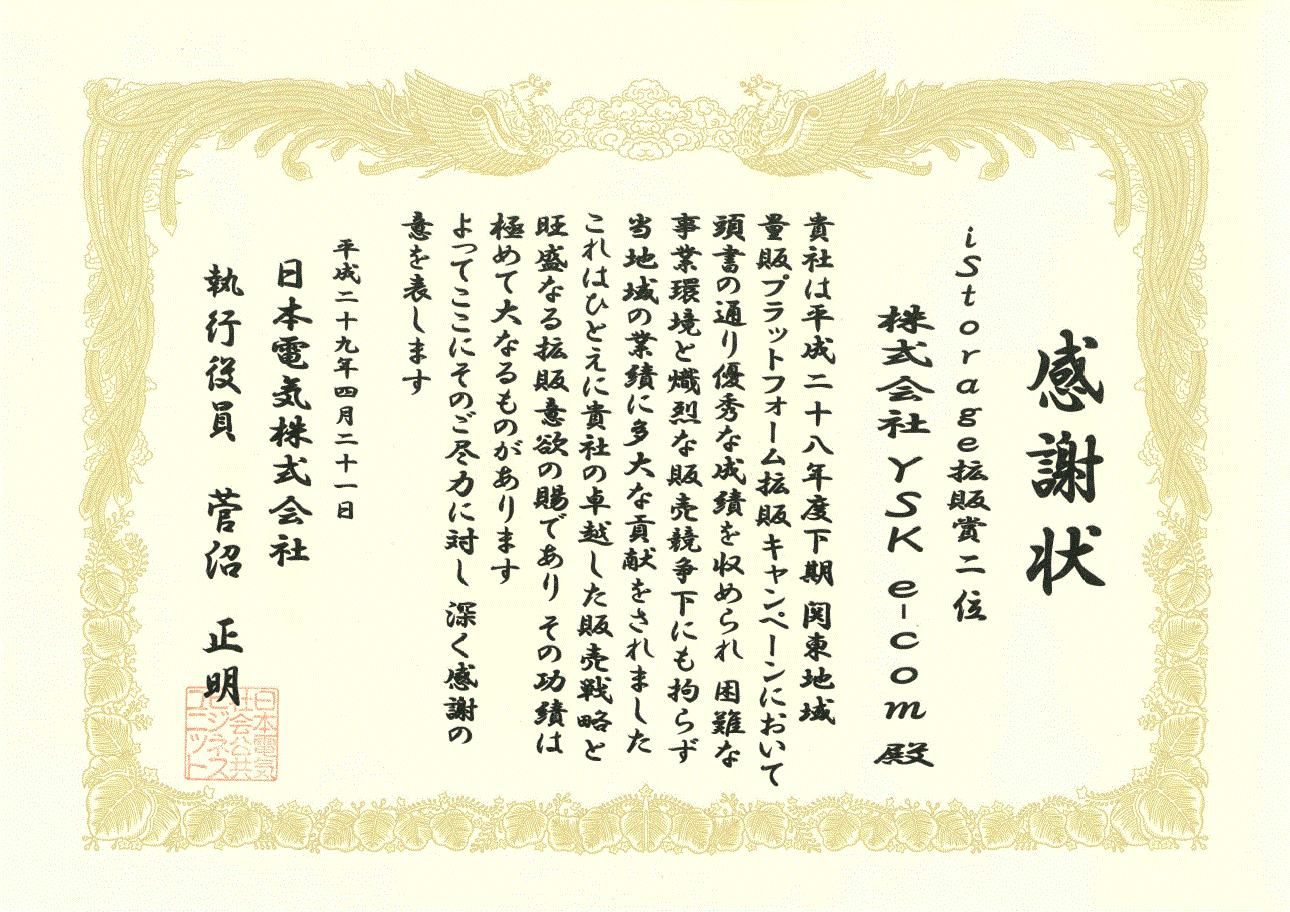 感謝状
iStorage拡販賞二位
株式会社YSK e-com 殿
貴社は平成二十八年度下期 関東地域
量販プラットフォーム拡販キャンペーンにおいて
頭書の通り優秀な成績を収められ 困難な
事業環境と熾烈な販売競争下にも拘らず
当地域の業績に多大な貢献をされました
これはひとえに貴社の卓越した販売戦略と
旺盛なる拡販意欲の賜であり その功績は
極めて大なるものがあります
よってここにそのご尽力に対し 深く感謝の
意を表します
平成二十九年四月二十一日
日本電気株式会社
執行役員 菅沼 正明
日本電気
社会公共
ビジネス
ユニット